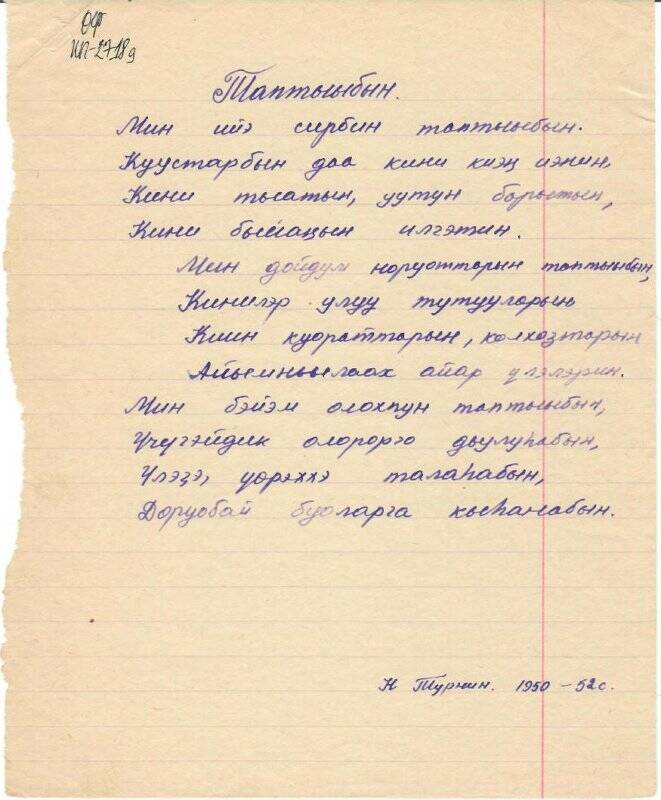 ОФ
КП-2718д
Таптыыбын.
Мин ийэ сирбин таптыыбын.
Куустарбын даа кини киэҥ иэнин,
Кини тыатын, уутун барытын,
Кини быйаҥын илгэтин.
Мин дойдум норуоттарын таптыыбын,
Кинилэр улуу тутууларын
Киин куораттарын, колхозтарын
Айымньылаах айар үлэлэрин.
Мин бэйэм олохпун таптыыбын,
Үчүгэйдик олорорго дьулуһабын,
Үлэҕэ, үөрэххэ талаһабын,
Доруобай буоларга кыһанабын.
Н Турнин. 1950 – 52 с.